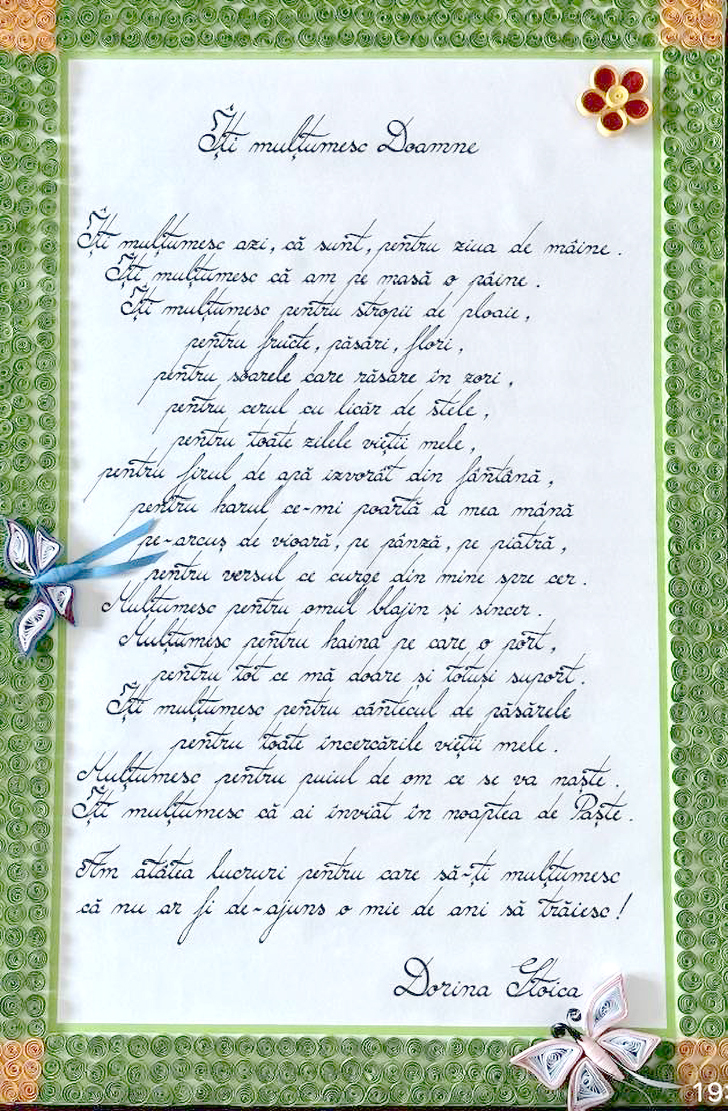 Îți mulțumesc Doamne
Îți mulțumesc azi, că sunt, pentru ziua de mâine.
Îți mulțumesc că am pe masă o pâine.
Îți mulțumesc pentru stropii de ploaie,
pentru fructe, păsări, flori,
pentru soarele care răsare în zori,
pentru cerul cu licăr de stele,
pentru toate zilele vieții mele,
pentru firul de apă izvorât din fântână,
pentru harul ce-mi poartă a mea mână
pe-arcuș de vioară, pe pânză, pe piatră,
pentru versul ce curge din mine spre cer.
Mulțumesc pentru omul blajin și sincer.
Mulțumesc pentru haina pe care o port,
pentru tot ce mă doare și totuși suport.
Îți mulțumesc pentru cântecul de păsărele
pentru toate încercările vieții mele.
Mulțumesc pentru puiul de om ce se va naște.
Îți mulțumesc că ai înviat în noaptea de Paște.
Am atâtea lucruri pentru care să-ți mulțumesc
că nu ar fi de-ajuns o mie de ani să trăiesc!
Dorina Stoica
19